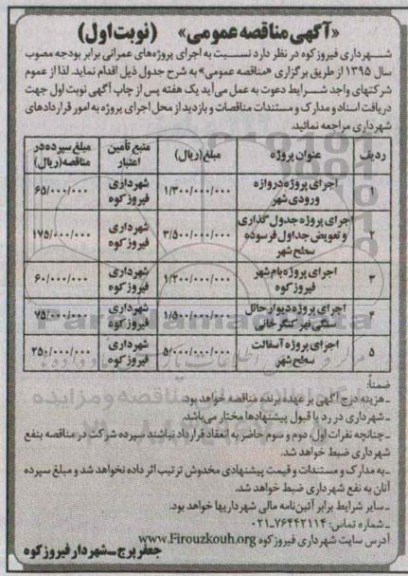 «آگهی مناقصه عمومی» (نوبت اول)
شهرداری فیروزکوه در نظر دارد نسبت به اجرای پروژه‌های عمرانی برابر بودجه مصوب
سال ۱۳۹۵ از طریق برگزاری «مناقصه عمومی» به شرح جدول ذیل اقدام نماید. لذا از عموم
شرکتهای واجد شرایط دعوت به عمل می‌آید یک هفته پس از چاپ آگهی نوبت اول جهت
دریافت اسناد و مدارک و مستندات مناقصات و بازدید از محل اجرای پروژه به امور قراردادهای
شهرداری مراجعه نمائید.
ردیف عنوان پروژه مبلغ (ریال) منبع تأمین اعتبار مبلغ سپرده در مناقصه (ریال)
۱ اجرای پروژه دروازه ورودی شهر ۱/۳۰۰/۰۰۰/۰۰۰ شهرداری فیروزکوه ۶۵/۰۰۰/۰۰۰
۲ اجرای پروژه جدول گذاری و تعویض جداول فرسوده سطح شهر ۳/۵۰۰/۰۰۰/۰۰۰ شهرداری فیروزکوه ۱۷۵/۰۰۰/۰۰۰
۳ اجرای پروژه بام شهر فیروزکوه ۱/۲۰۰/۰۰۰/۰۰۰ شهرداری فیروزکوه ۶۰/۰۰۰/۰۰۰
۴ اجرای پروژه دیوار حائل سنگی نهر کنگرخانی ۱/۵۰۰/۰۰۰/۰۰۰ شهرداری فیروزکوه ۷۵/۰۰۰/۰۰۰
۵ اجرای پروژه آسفالت سطح شهر ۵/۰۰۰/۰۰۰/۰۰۰ شهرداری فیروزکوه ۲۵۰/۰۰۰/۰۰۰
ضمناً:
ـ هزینه درج آگهی بر عهده برنده مناقصه خواهد بود.
ـ شهرداری در رد یا قبول پیشنهادها مختار می‌باشد.
ـ چنانچه نفرات اول، دوم و سوم حاضر به انعقاد قرارداد نباشند سپرده شرکت در مناقصه بنفع
شهرداری ضبط خواهد شد.
ـ به مدارک و مستندات و قیمت پیشنهادی مخدوش ترتیب اثر داده نخواهد شد و مبلغ سپرده
آنان به نفع شهرداری ضبط خواهد شد.
ـ سایر شرایط برابر آئین‌نامه مالی شهرداریها خواهد بود.
ـ شماره تماس: ۷۶۴۴۲۱۱۴-۰۲۱
آدرس سایت شهرداری فیروزکوه www.Firouzkouh.org
جعفر برج ـ شهردار فیروزکوه